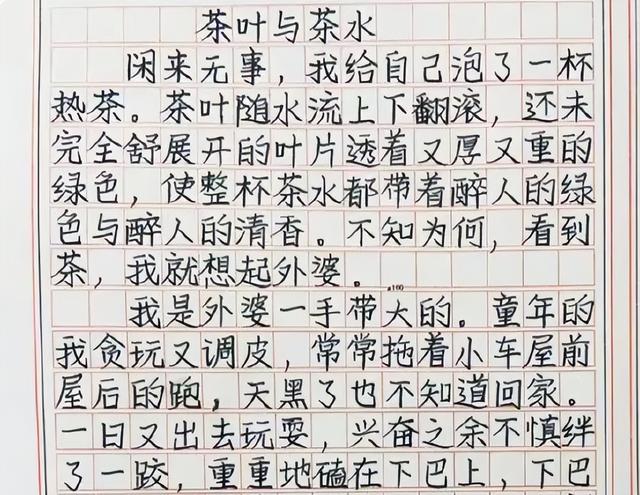 茶叶与茶水
闲来无事，我给自己泡了一杯
热茶。茶叶随水流上下翻滚，还未
完全舒展开的叶片透着又厚又重的
绿色，使整杯茶水都带着醉人的绿
色与醉人的清香。不知为何，看到
茶，我就想起外婆。
▲100
我是外婆一手带大的。童年的
我贪玩又调皮，常常拖着小车屋前
屋后的跑，天黑了也不知道回家。
一日又出去玩耍，兴奋之余不慎绊
了一跤，重重地磕在下巴上，下巴